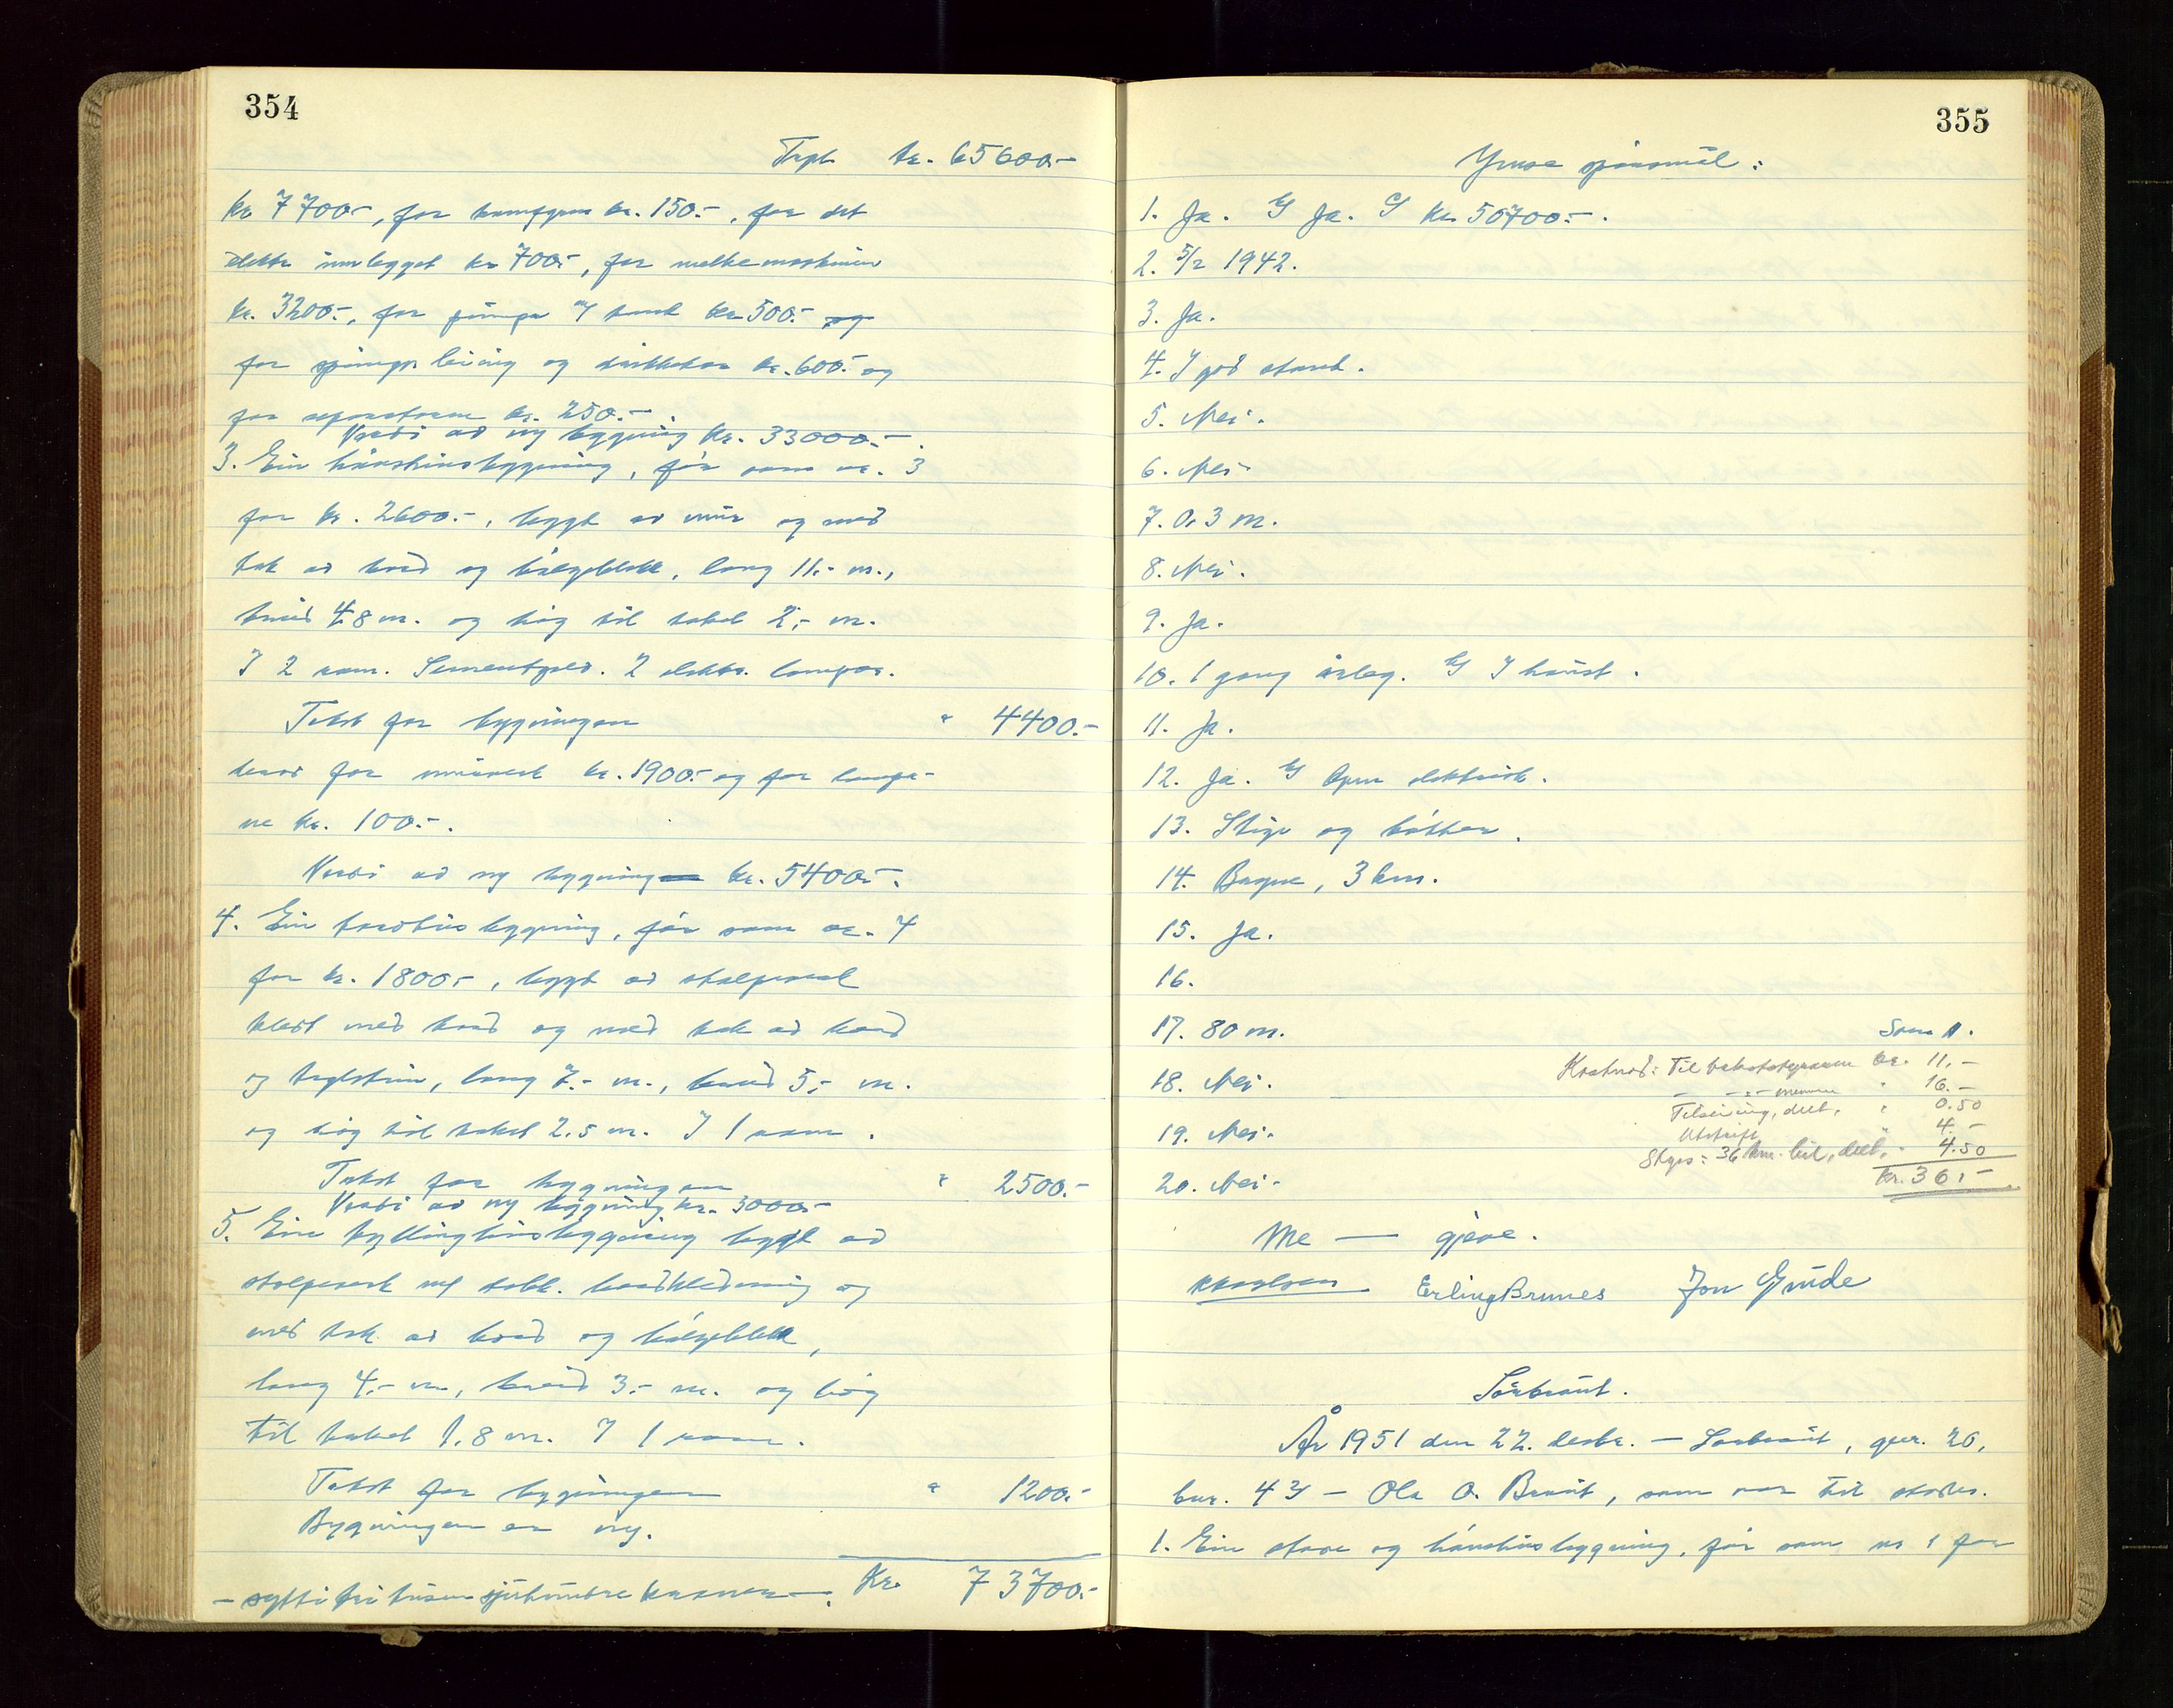 354
kr. 65600.-
kr 7700.-, for kr. 150.-, for det
elektr innlegget kr 700.-, for melkemaskinen
kr. 3200.-, for pumpe og tank kr 500.- og
for leiing og kr. 600.- og
for separatoren kr. 250.-.
Verdi av ny bygning kr. 33000.-.
3. Ein hønsehusbygning, før som nr. 3
for kr. 2600.-, bygt av mur og med
tak av bord og bølgeblekk, lang 11.- m.,
breid 4.8 m. og høg til taket 2,- m.
I 2 rom. Sementgolv. 2 elektr. lampor.
Takst for bygningen " 4400.-
derav for murverk kr. 1900.- og for lampe-
ne kr. 100.-.
Verdi av ny bygning kr. 5400.-.
4. Ein bygning, før som nr. 4
for kr. 1800.-, bygt av stolpeverk
kledt med bord og med tak av bord
og teglstein, lang 7.- m., breid 5,- m.
og høg til taket 2.5 m. I 1 rom.
Takst for bygningen " 2500.-
Verdi av ny bygning kr. 3000.-
5. Ein kyllinghusbygning bygt av
stolpeverk m/ dobb. bordkledning og
med tak av bord og bølgeblekk,
lang 4.- m., breid 3.- m. og høg
til taket 1.8 m. I 1 rom.
Takst for bygningen " 1200.-
Bygningen er ny.
- sytti tri tusen sjuhundre kroner -. Kr. 73700.-
355
Ymse spørsmål:
1. Ja. Ja. kr. 50700.-.
2. 5/2 1942.
3. Ja.
4. I god stand.
5. Nei.
6. Nei
7. 0.3 m.
8. Nei.
9. Ja.
10. 1 gang årleg. I haust.
11. Ja.
12. Ja. elektrisk.
13. Stige og bøtter.
14. Bryne, 3 km.
15. Ja.
16.
17. 80 m. Som A.
Kostnad: Til takststyraren kr. 11.-
- " - mennene " 16.-
18. Nei.
Tilseiing, delt, " 0.50
Utskrift " 4.-
19. Nei.
Skyss: 36 km. bil, delt, " 4.50
20. Nei.
Kr. 36.-
Me — gjeve.
Erling Brunes Jon Grude
Sørbraut.
År 1951 den 22. desbr. - Sørbraut, gnr. 20,
bnr. 43 - Ola O. Braut, som var til stades.
1. Ein stove og hønehusbygning, før som nr 1 for